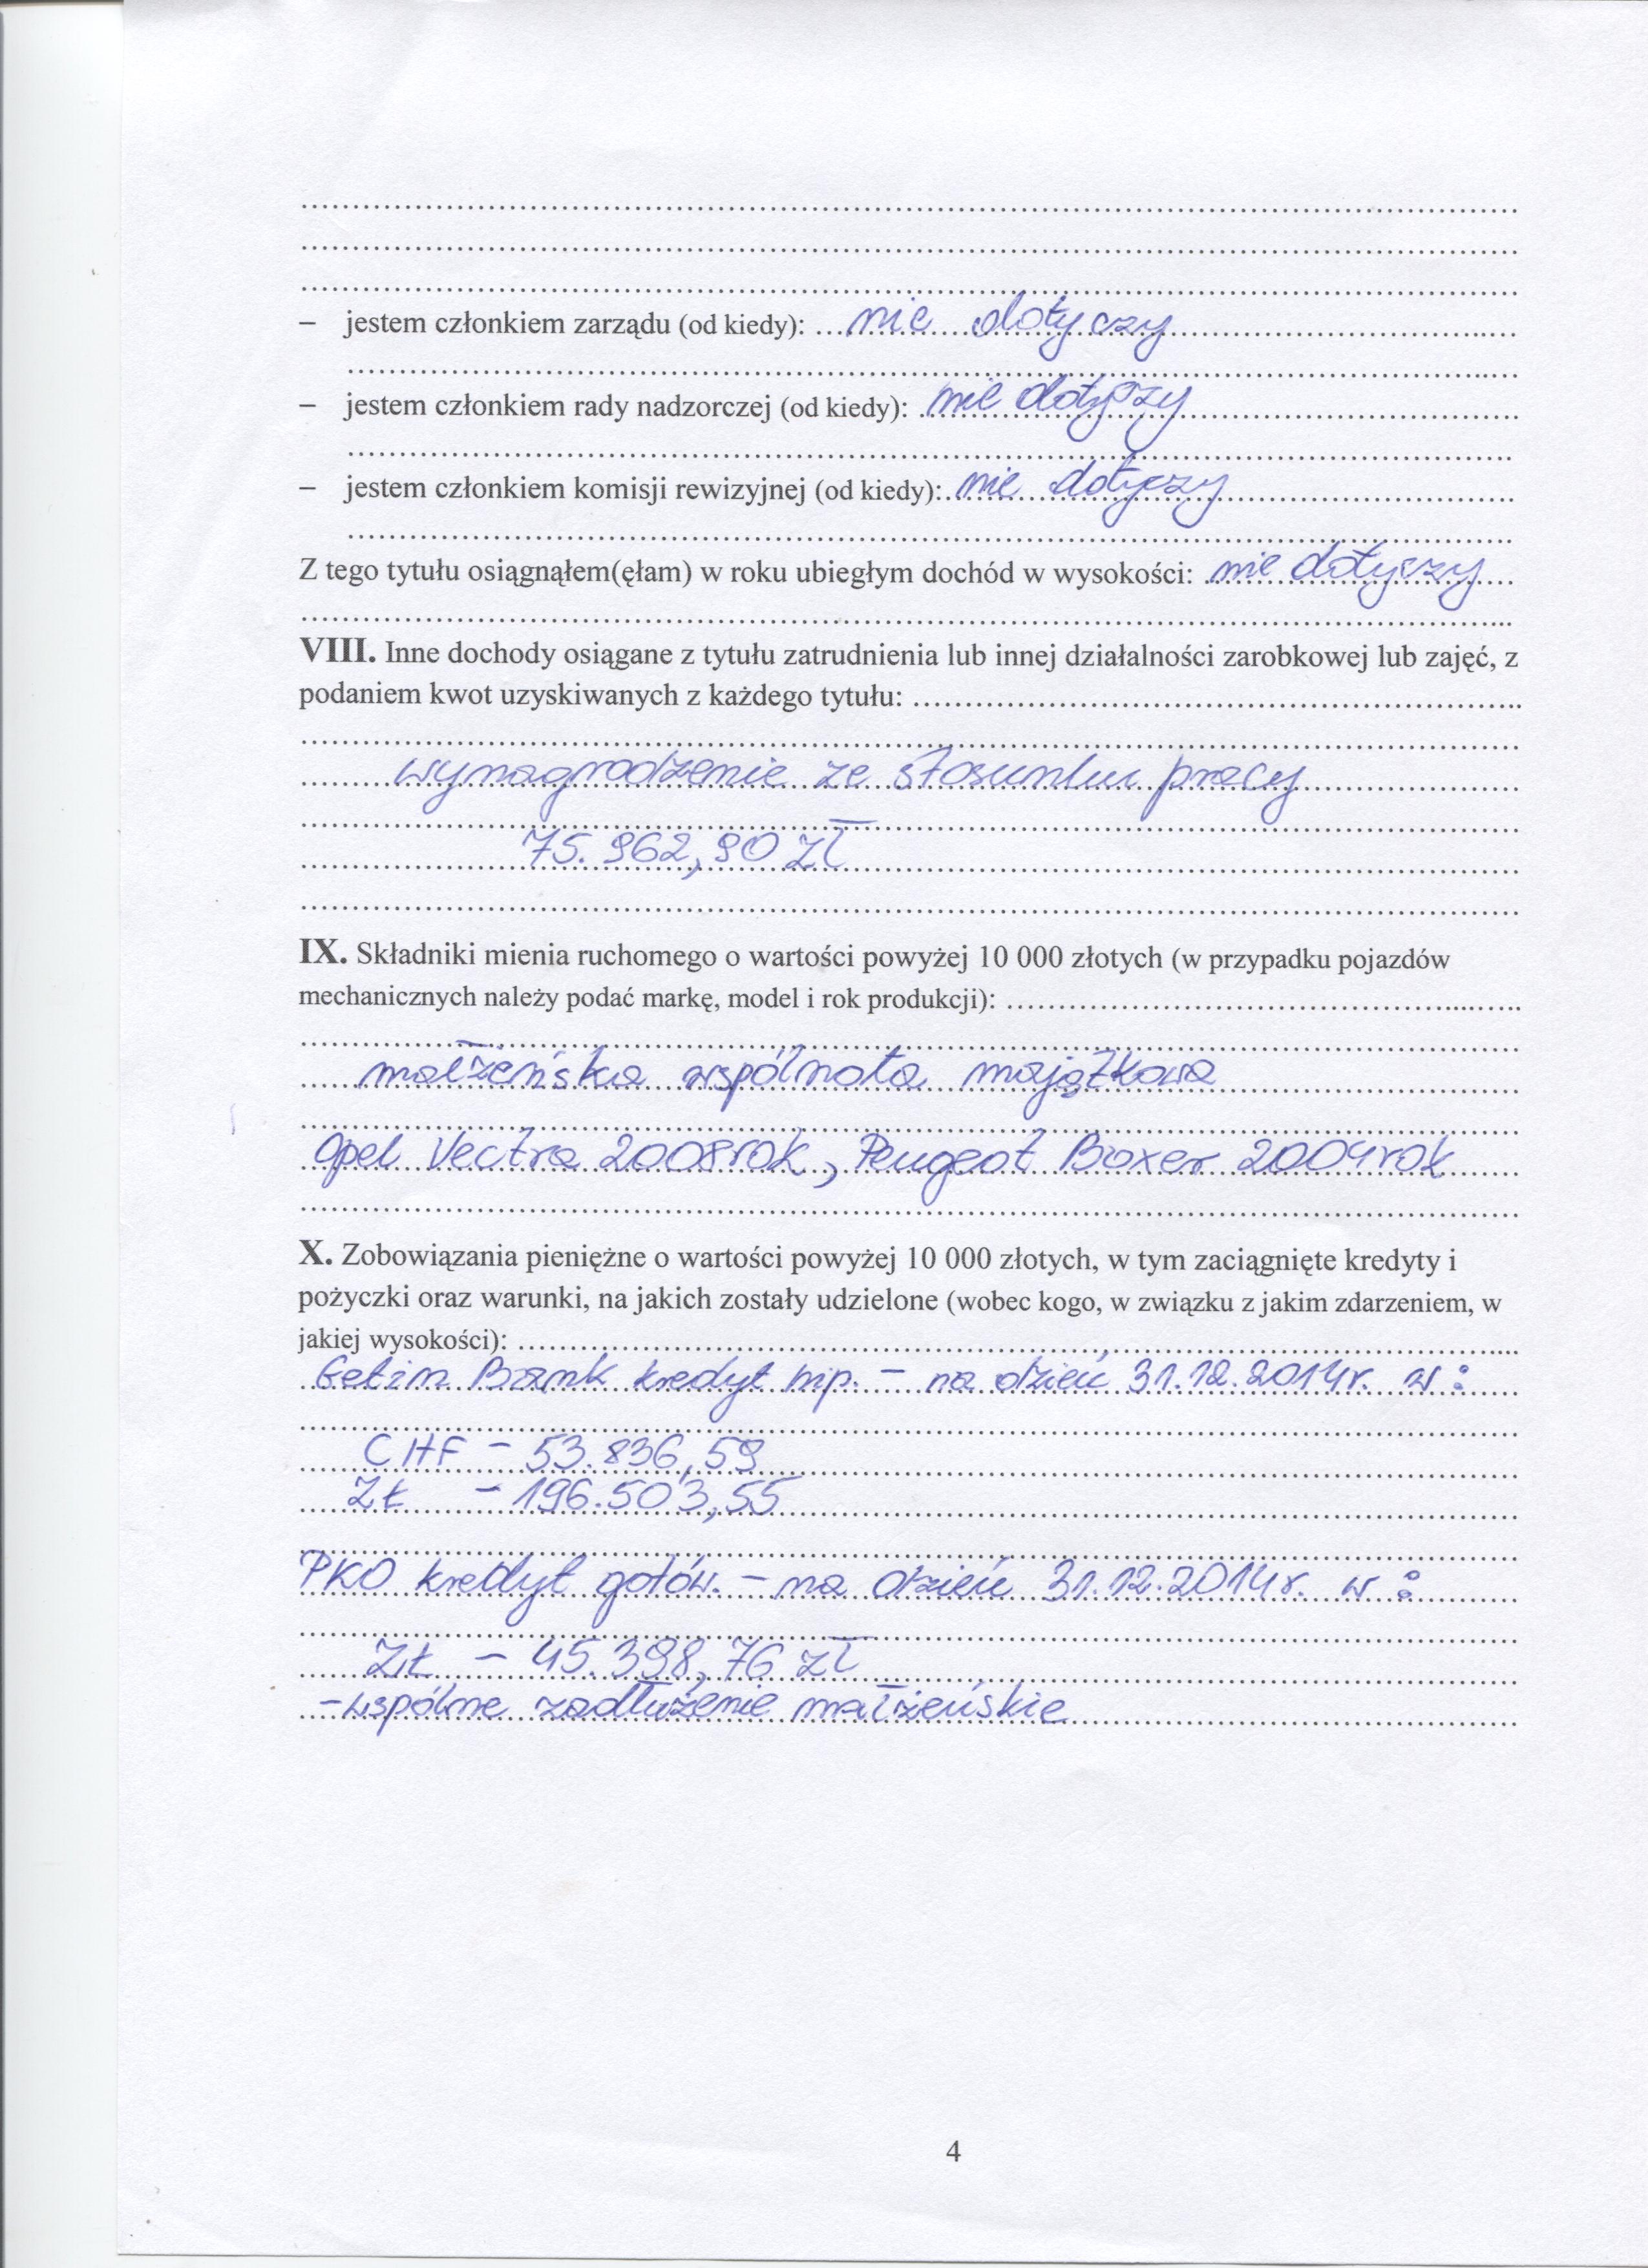 – jestem członkiem zarządu (od kiedy): nie dotyczy
– jestem członkiem rady nadzorczej (od kiedy): nie dotyczy
– jestem członkiem komisji rewizyjnej (od kiedy): nie dotyczy
Z tego tytułu osiągnąłem(ęłam) w roku ubiegłym dochód w wysokości: nie dotyczy
VIII. Inne dochody osiągane z tytułu zatrudnienia lub innej działalności zarobkowej lub zajęć, z
podaniem kwot uzyskiwanych z każdego tytułu:
wynagrodzenie ze stosunku pracy
75.962,90 zł
IX. Składniki mienia ruchomego o wartości powyżej 10 000 złotych (w przypadku pojazdów
mechanicznych należy podać markę, model i rok produkcji):
małżeńska wspólnota majątkowa
Opel Vectra 2008 rok, Peugeot Boxer 2004 rok
X. Zobowiązania pieniężne o wartości powyżej 10 000 złotych, w tym zaciągnięte kredyty i
pożyczki oraz warunki, na jakich zostały udzielone (wobec kogo, w związku z jakim zdarzeniem, w
jakiej wysokości):
Getin Bank kredyt hip. – na dzień 31.12.2014r. w :
CHF – 53.836,59
ZŁ – 196.503,55
PKO kredyt gotów. – na dzień 31.12.2014r. w :
ZŁ – 45.398,76 zł
– wspólne zadłużenie małżeńskie
4